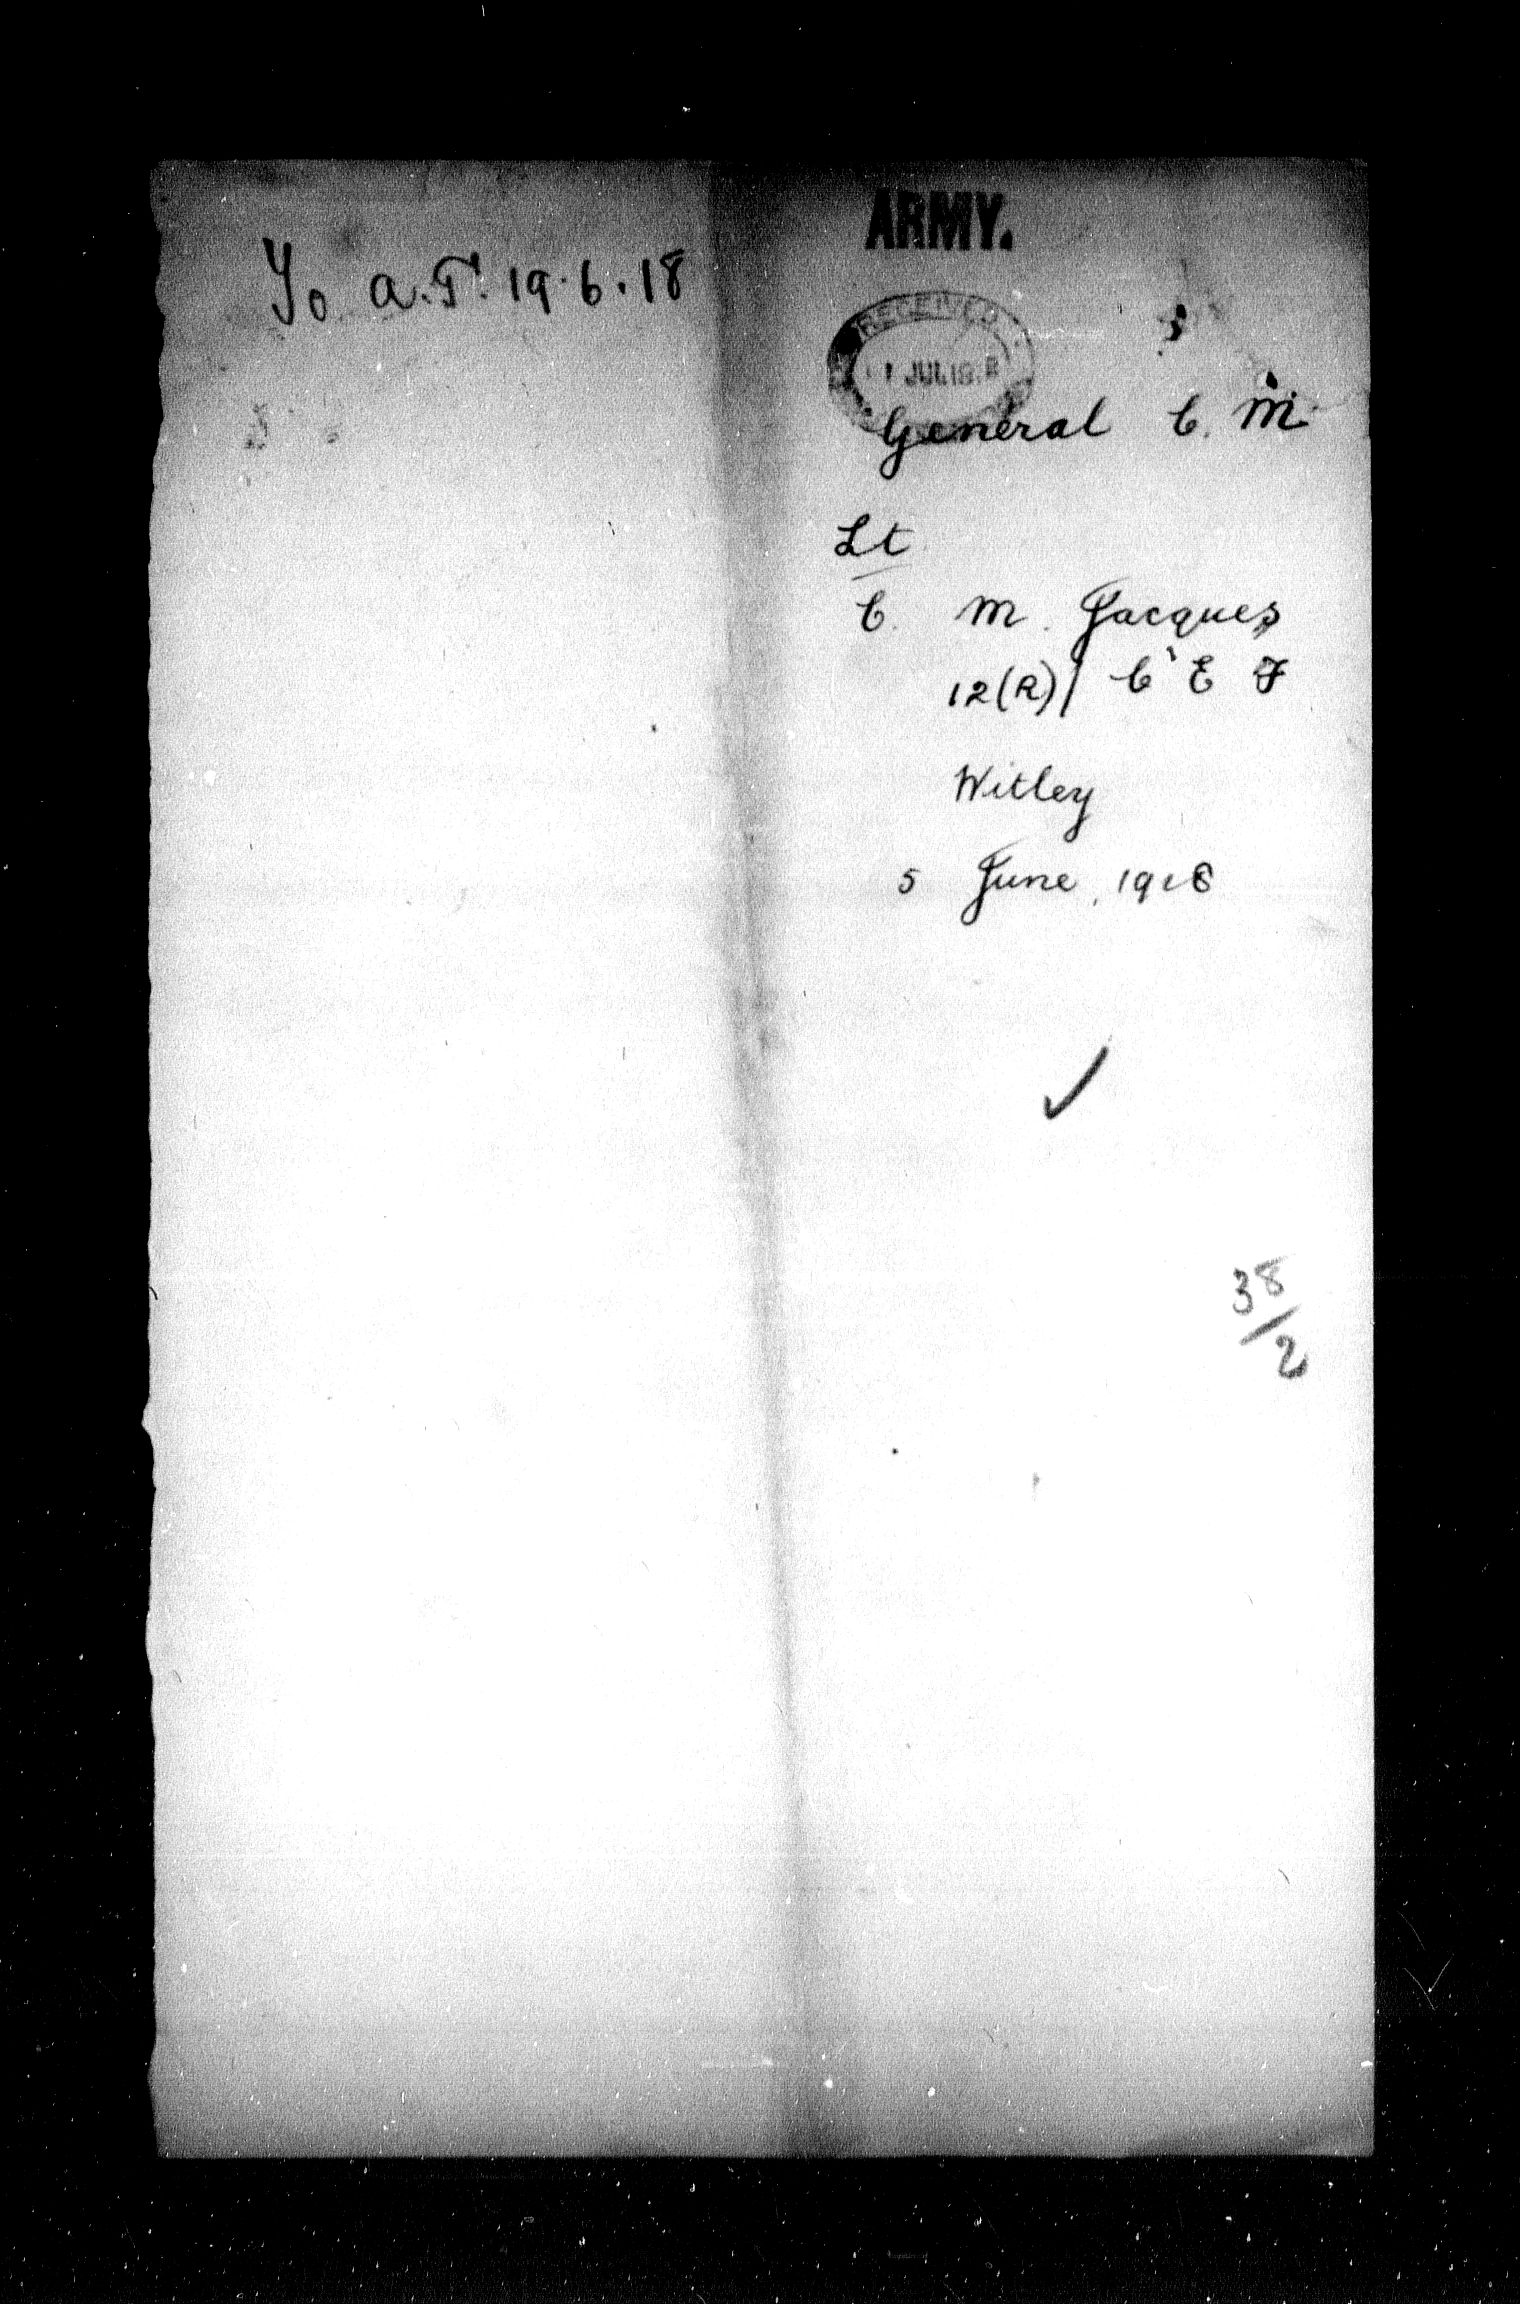 To A.F. 19.6.18
ARMY.
RECEIVED
JUL 19
General C. M.
Lt
C. M. Jacques
12(R)/ C E F
Witley
5 June, 1918
38/2